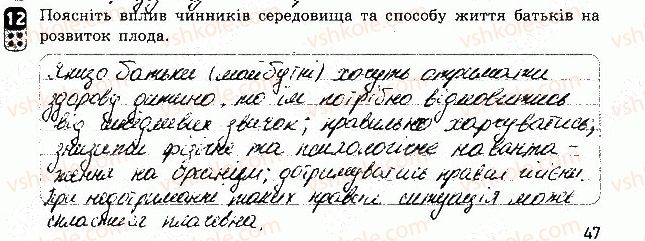 12 Поясніть вплив чинників середовища та способу життя батьків на
розвиток плода.
Якщо батьки (майбутні) хочуть отримати
здорову дитину, то їм потрібно відмовитись
від шкідливих звичок; правильно харчуватись,
знизити фізичне та психологічне наванта-
ження на організм; дотримуватись правил гігієни.
При недотриманні таких правил ситуація може
скластися плачевна.
47